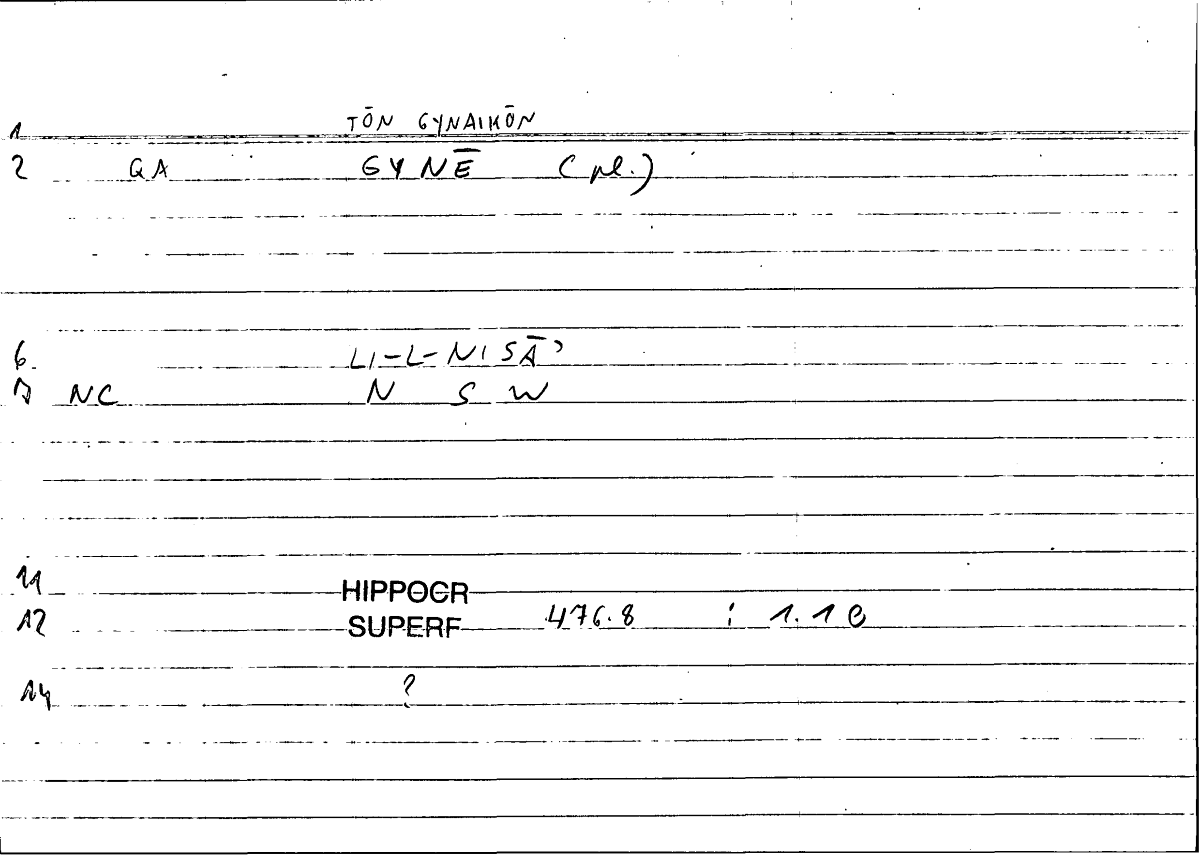 1 TŌN GYNAIKŌN
2 QA GYNĒ (pl.)
6. LI-L-NISĀʾ
7 NC N S W
11 HIPPOCR
12 SUPERF 476.8 : 1.10
14 ?